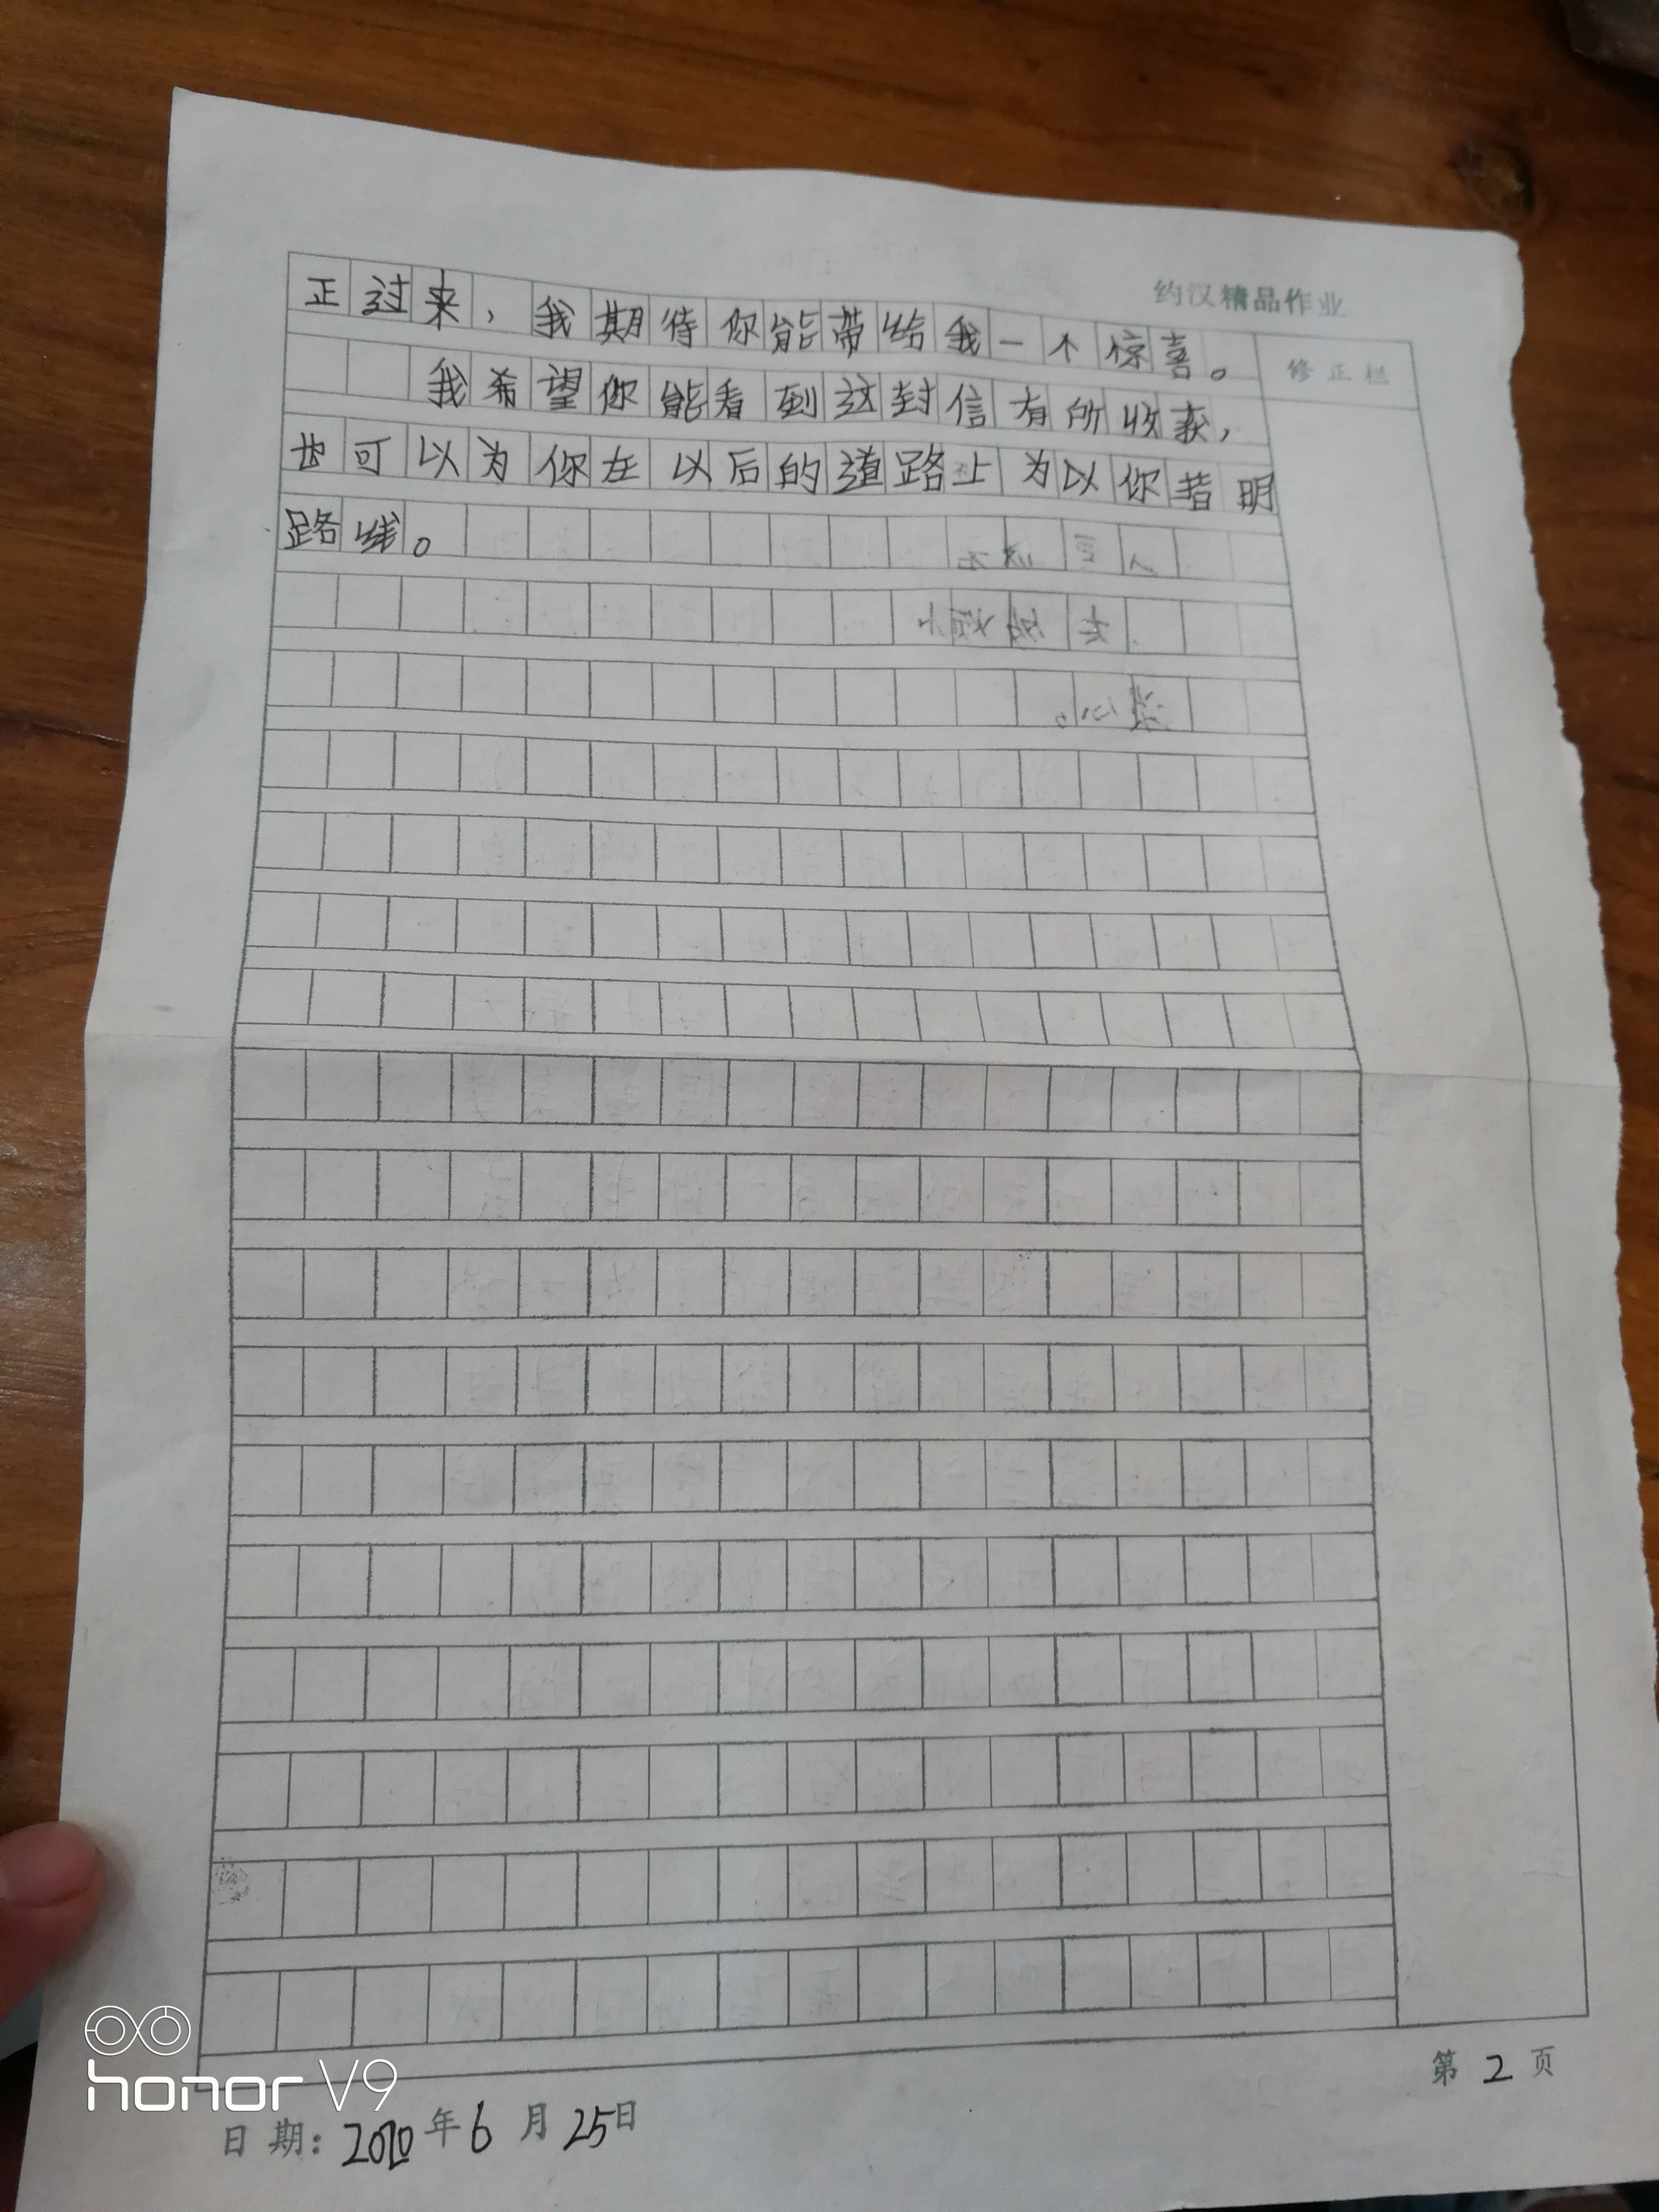 约汉精品作业
修正栏
正过来，我期待你能带给我一个惊喜。
我希望你能看到这封信有所收获，
也可以为你在以后的道路上为以你指明
路线。
第2页
日期：2020年6月25日
honor V9